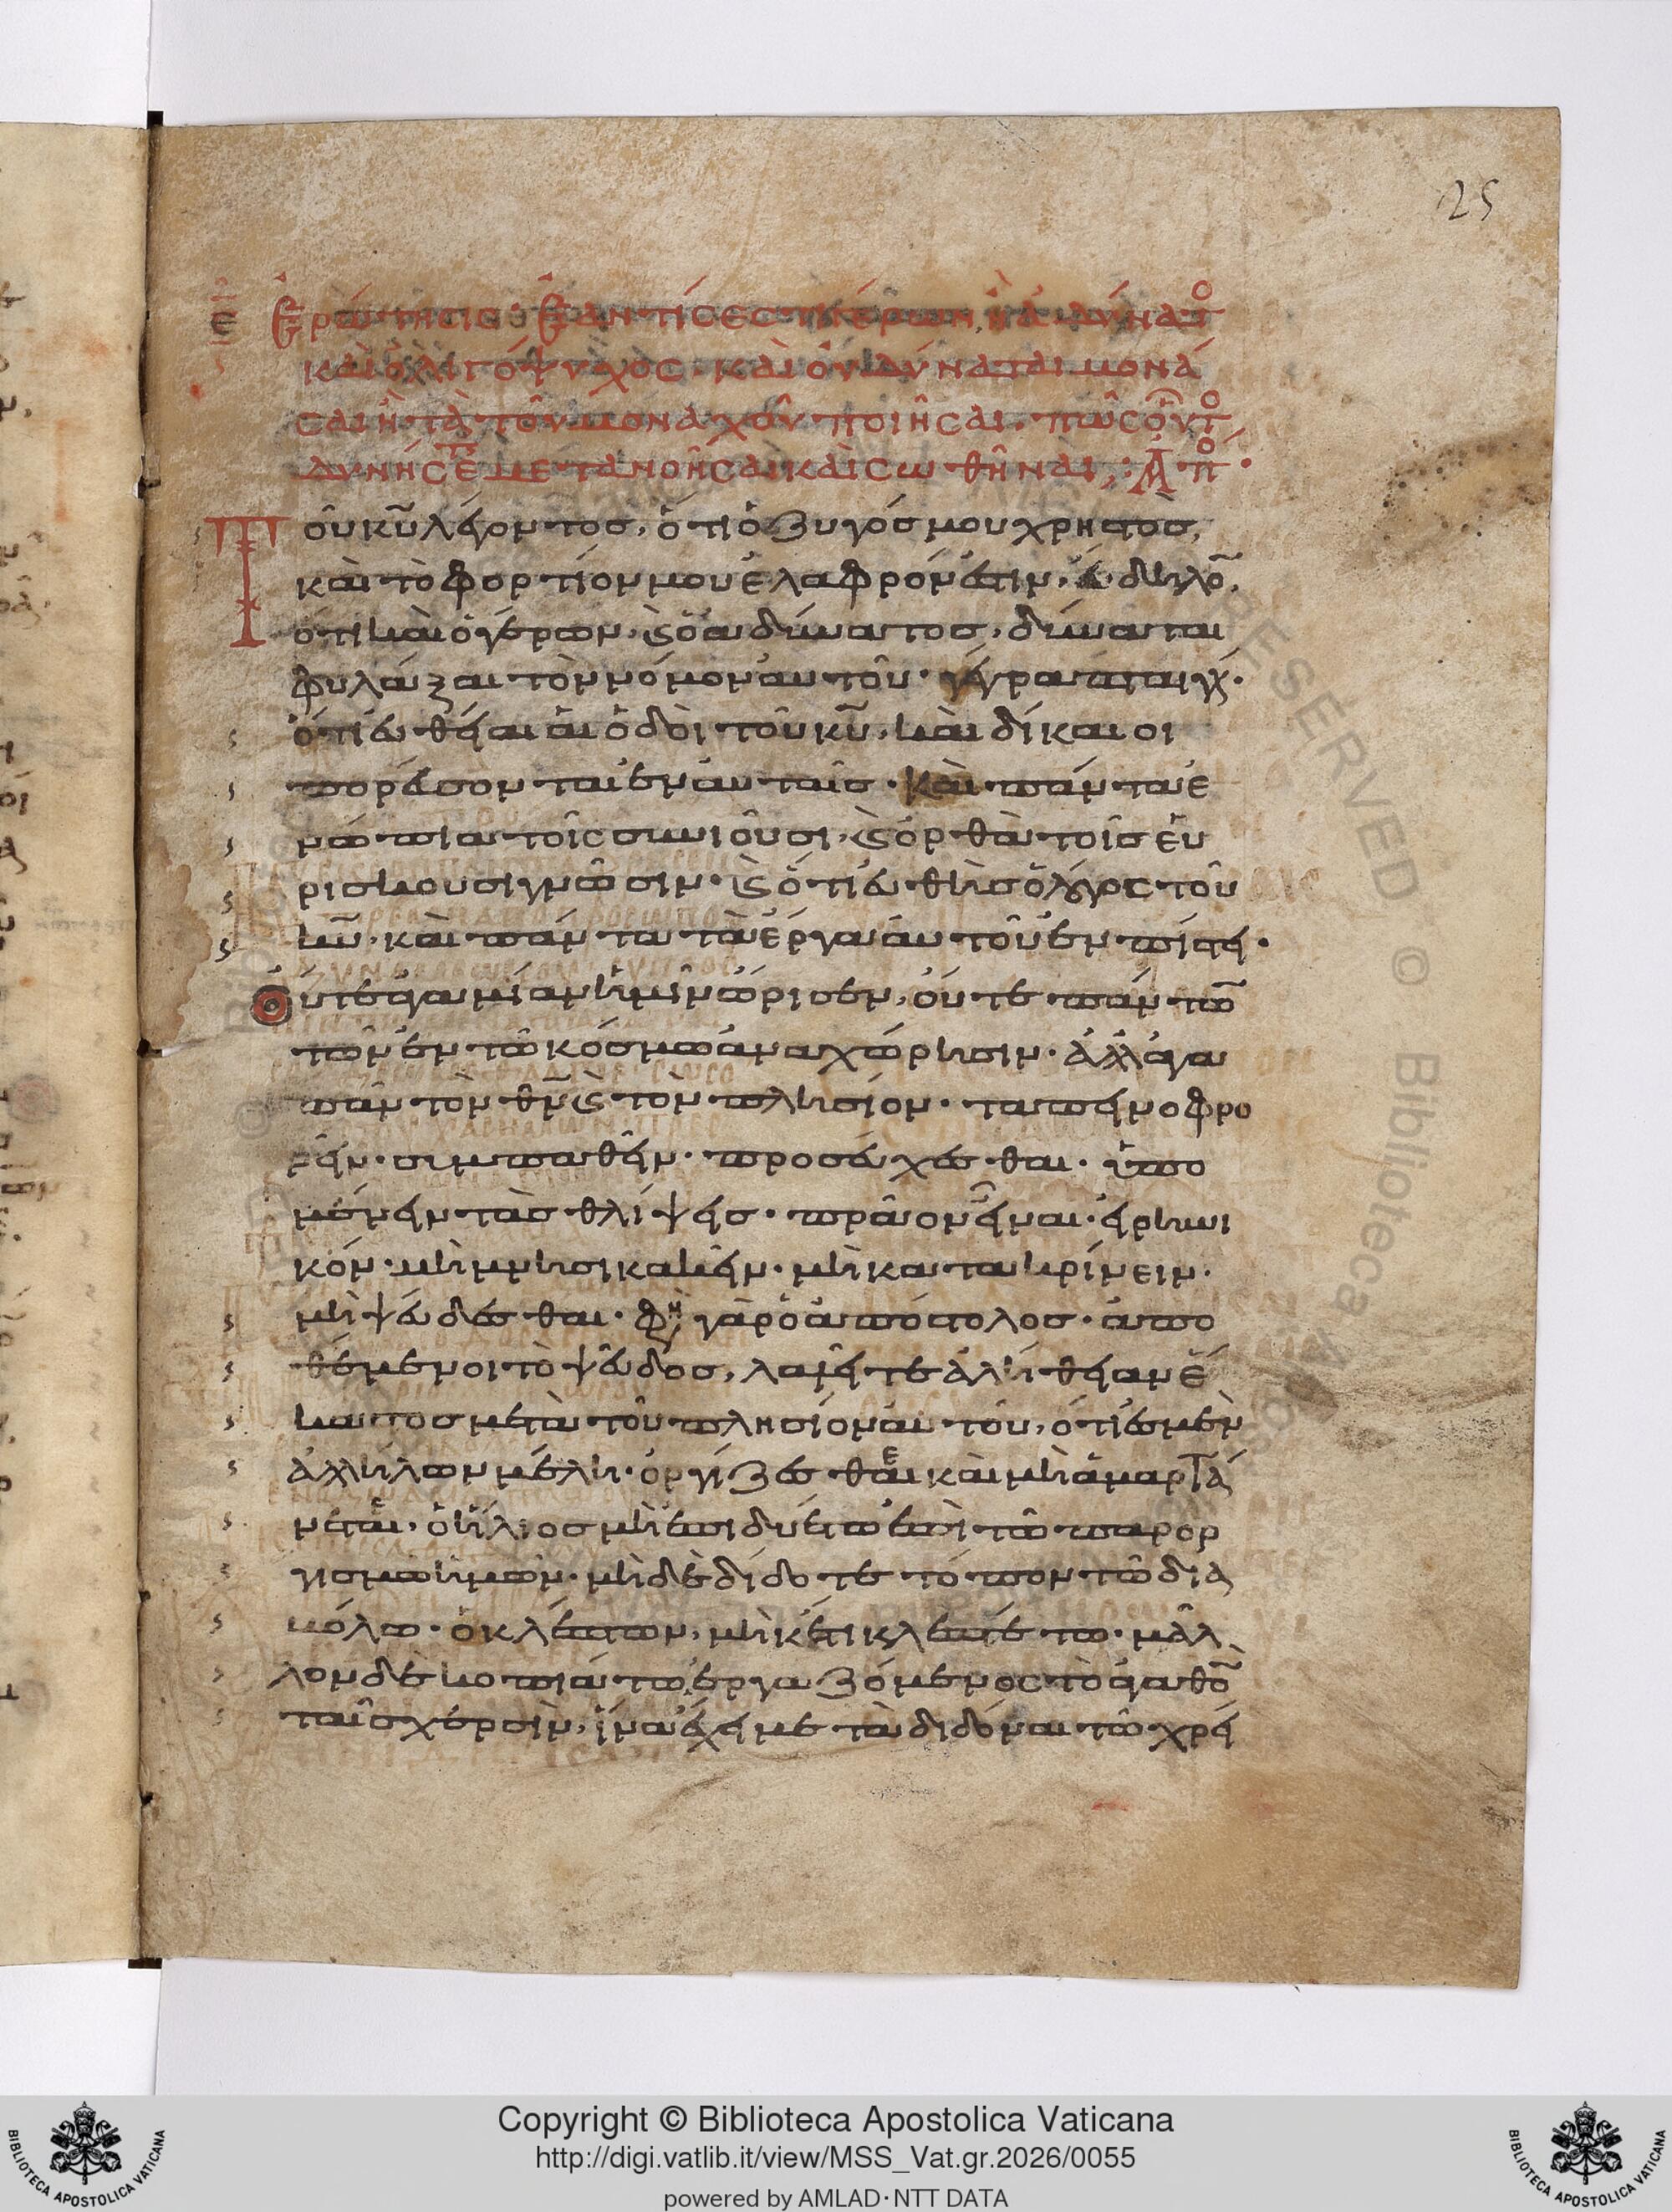 25
ε Ἐρώτησις· Ἐὰν τίς ἐστι γέρων, ἢ ἀδύνατο
καὶ ὀλιγόψυχος· καὶ οὐ δύναται μονά
σαι ἢ τὰ τοῦ μοναχοῦ ποιῆσαι, πῶς οὗτο
δυνήσετ μετανοῆσαι καὶ σωθῆναι; Ἀπο·
Τοῦ κυ λέγοντος, ὅτι ὁ ζυγός μου χρηστὸς,
καὶ τὸ φορτίον μου ἐλαφρόν ἐστιν, δῆλο,
ὅτι καὶ ὁ γέρων, καὶ ὁ ἀδύνατος, δύναται
φυλάξαι τὸν νόμον αὐτοῦ· γέγραπται γ·
ὅτι εὐθεῖαι αἱ ὁδοὶ τοῦ κυ, καὶ δίκαιοι
πορεύσονται ἐν αὐταῖς· καὶ πάντα ἐ
νώπια τοῖς συνιοῦσι, καὶ ὀρθὰ τοῖς εὑ
ρίσκουσι γνῶσιν· καὶ ὅτι εὐθὴς ὁ λόγος τοῦ
κυ, καὶ πάντα τὰ ἔργα αὐτοῦ ἐν πίστει·
Οὔτε ἁγαμίαν ἡμῖν ὥρισεν, οὔτε πάντω
τῶν ἐν τῶ κόσμω ἀναχώρησιν· ἀλλ' ἀγα
πᾶν τὸν θν καὶ τὸν πλησίον· ταπεινοφρο
νεῖν· συμπαθεῖν· προσεύχεσθαι· ὑπο
μένειν τὰς θλίψεις· πρᾶον εἶναι· εἰρηνι
κόν· μὴ μνησικακεῖν· μὴ κατακρίνειν·
μὴ ψεύδεσθαι· φη γὰρ ὁ ἀπόστολος· ἀπο
θέμενοι τὸ ψεῦδος, λαλεῖτε ἀλήθειαν ἕ
καστος μετὰ τοῦ πλησίον αὐτοῦ, ὅτι ἐσμὲν
ἀλλήλων μέλη· ὀργίζεσθαι καὶ μὴ ἁμαρτά
νεται· ὁ ἥλιος μὴ ἐπιδυέτω ἐπὶ τῶ παρορ
γισμῶ ἡμῶν· μὴ δὲ δίδοτε τόπον τῶ δια
βόλω· ὁ κλέπτων, μὴ κέτι κλεπτέτω· μᾶλ
λον δὲ κοπιάτω ἐργαζόμενος τὸ ἀγαθὸ
ταῖς χερσὶν, ἵνα ἔχει μεταδιδόναι τῶ χρεί
RESERVED © Biblioteca Apos
Copyright © Biblioteca Apostolica Vaticana
http://digi.vatlib.it/view/MSS_Vat.gr.2026/0055
powered by AMLAD·NTT DATA
BIBLIOTECA APOSTOLICA VATICANA
BIBLIOTECA APOSTOLICA VATICANA